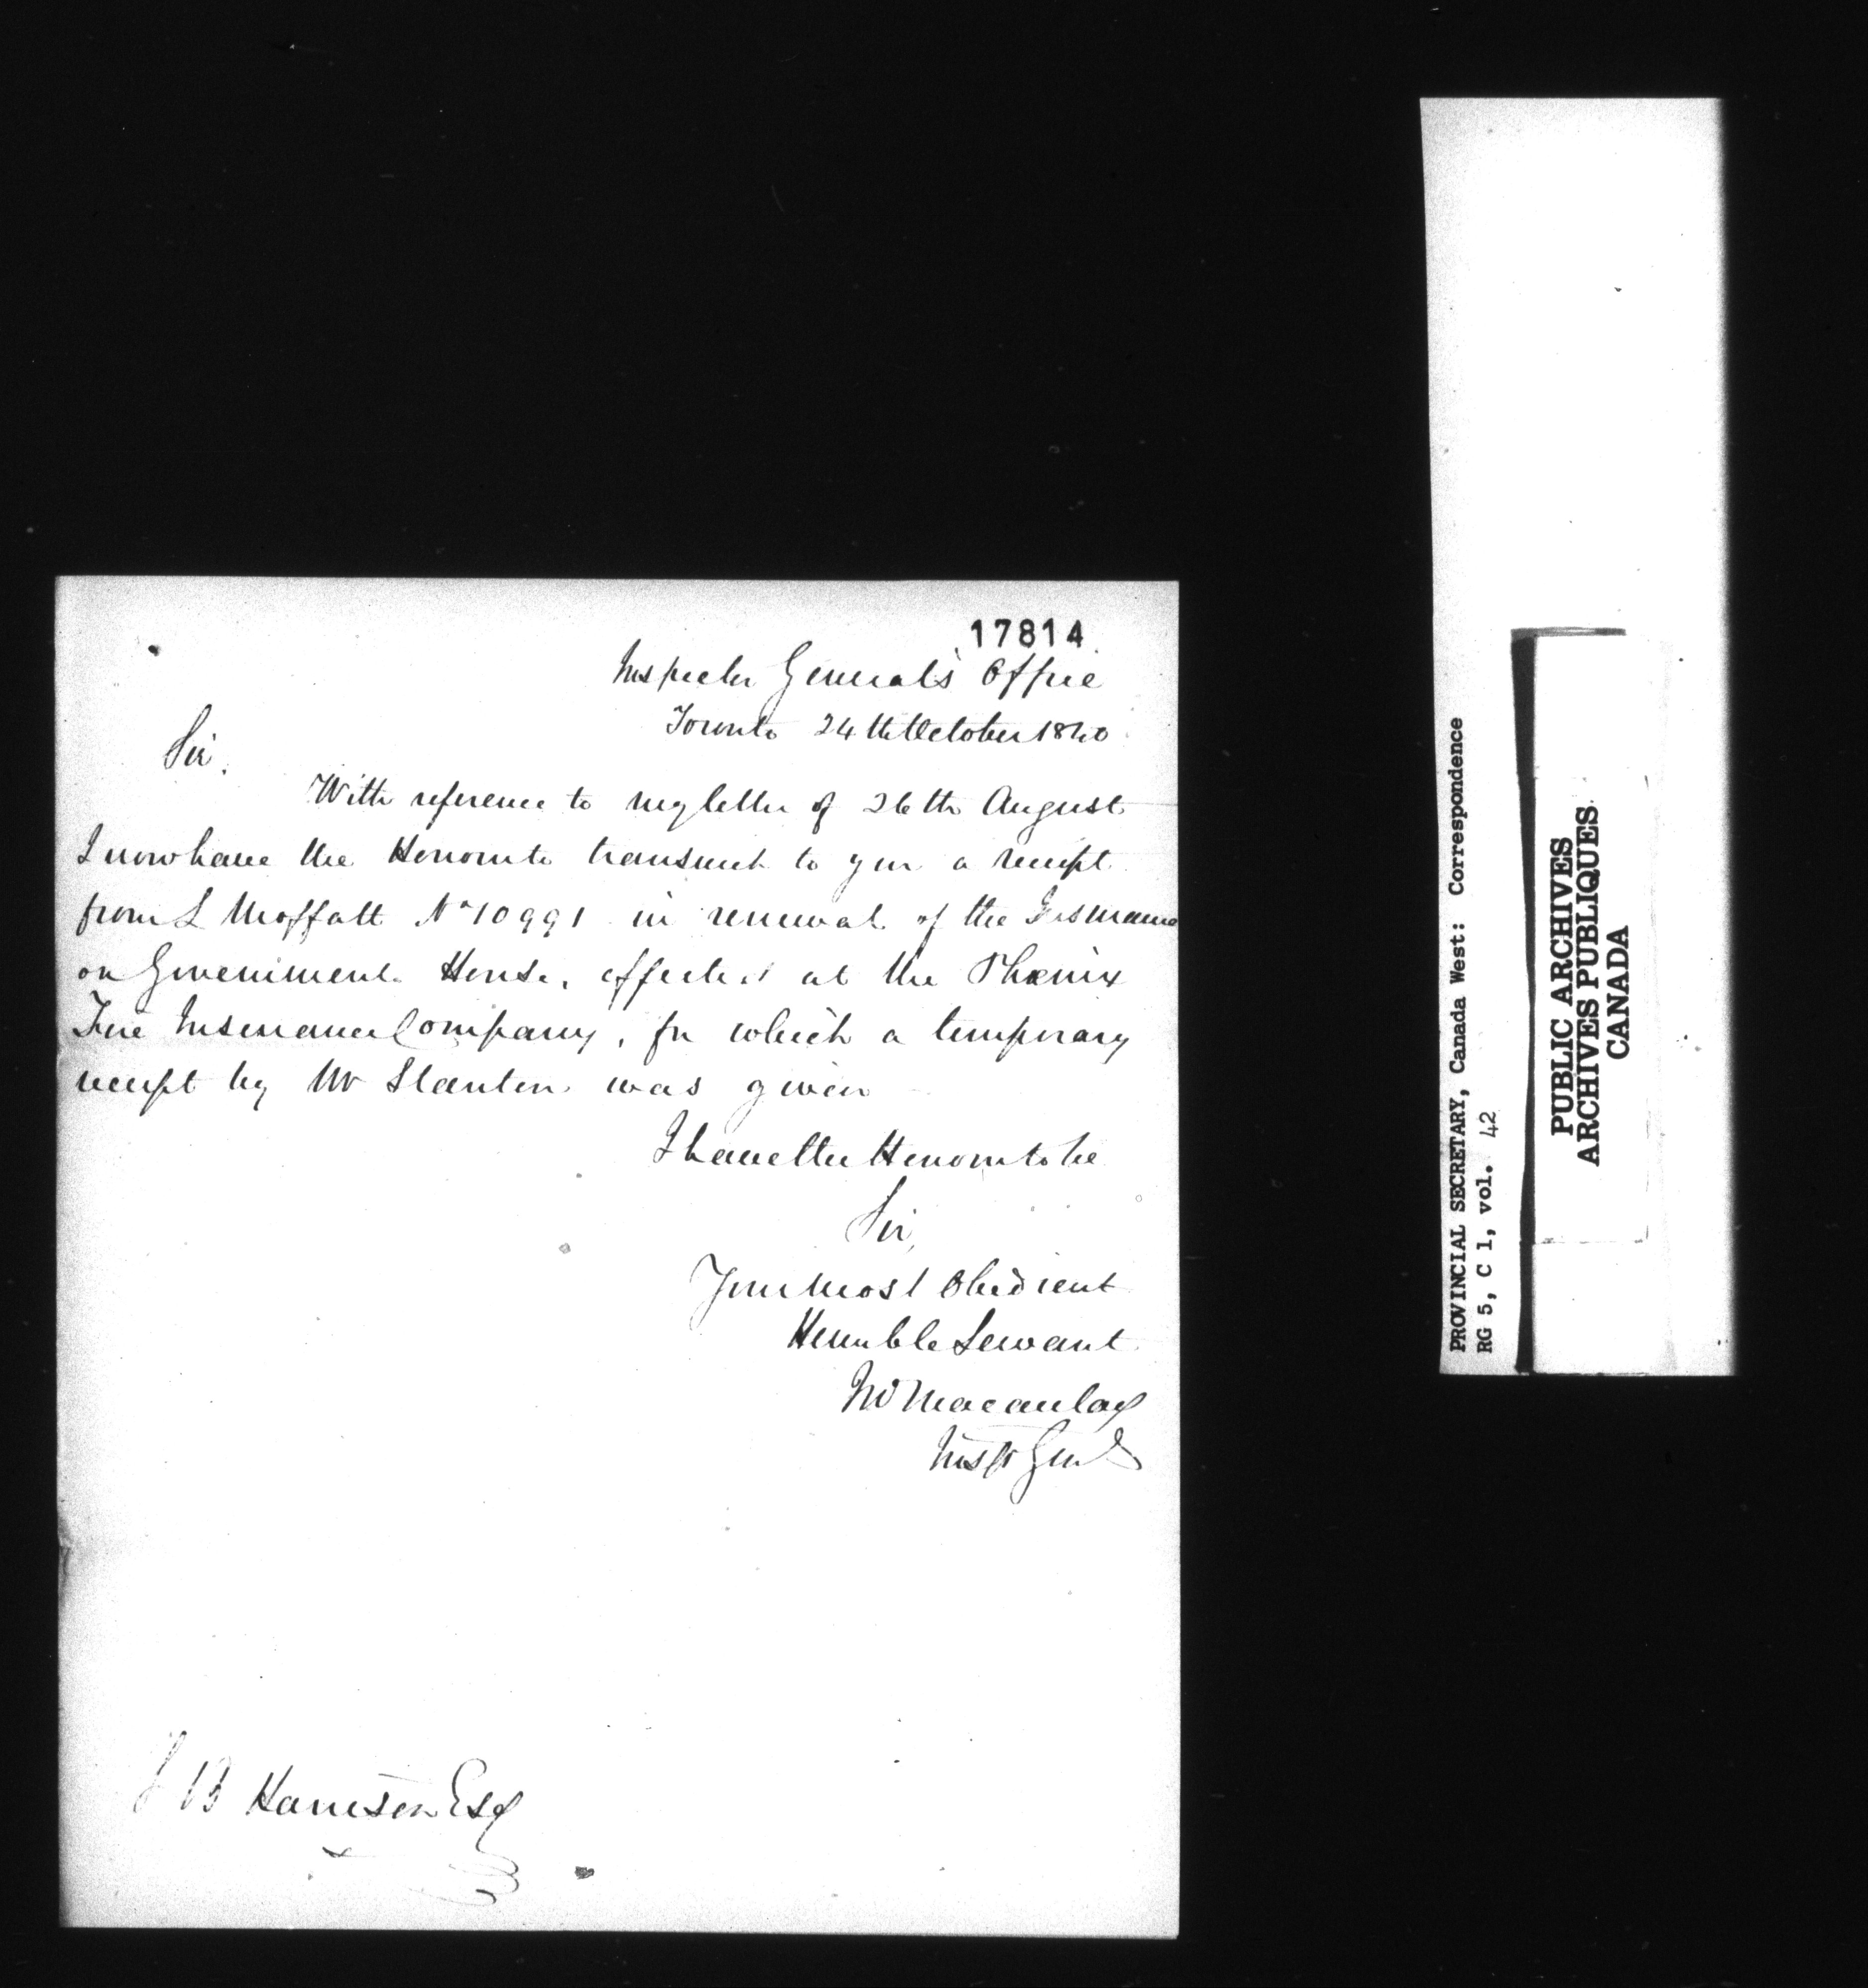 17814
Inspector General's Office
Toronto 24th October 1840
Sir,
With reference to my letter of 26th August
I now have the Honor to transmit to you a receipt
from L Moffatt No 10991 in renewal of the Insurance
on Government House, effected at the Phœnix
Fire Insurance Company, for which a temporary
receipt by Mr Stanton was given
I have the Honor to be
Sir,
Your Most Obedient
Humble Servant
Macaulay
Insp Genl
S B Harrison Esq
PROVINCIAL SECRETARY, Canada West: Correspondence
RG 5, C 1, vol. 42
PUBLIC ARCHIVES
ARCHIVES PUBLIQUES
CANADA